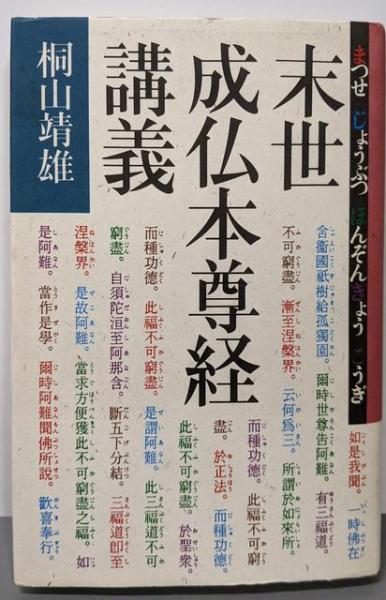 まつせ じょうぶつ ほんぞんきょう こうぎ
末世
成仏本尊経
講義
桐山靖雄
如是我聞。一時佛在
舍衛國祇樹給孤獨園。爾時世尊告阿難。有三福道。
不可窮盡。漸至涅槃界。云何爲三。所謂於如來所。
而種功德。此福不可窮
盡。於正法。而種功德。
此福不可窮盡。於聖衆
而種功德。此福不可窮盡。是謂阿難。此三福道不可
窮盡。自須陀洹至阿那含。斷五下分結。三福道卽至
涅槃界。是故阿難。當求方便獲此不可窮盡之福。如
是阿難。當作是學。爾時阿難聞佛所說。歡喜奉行。